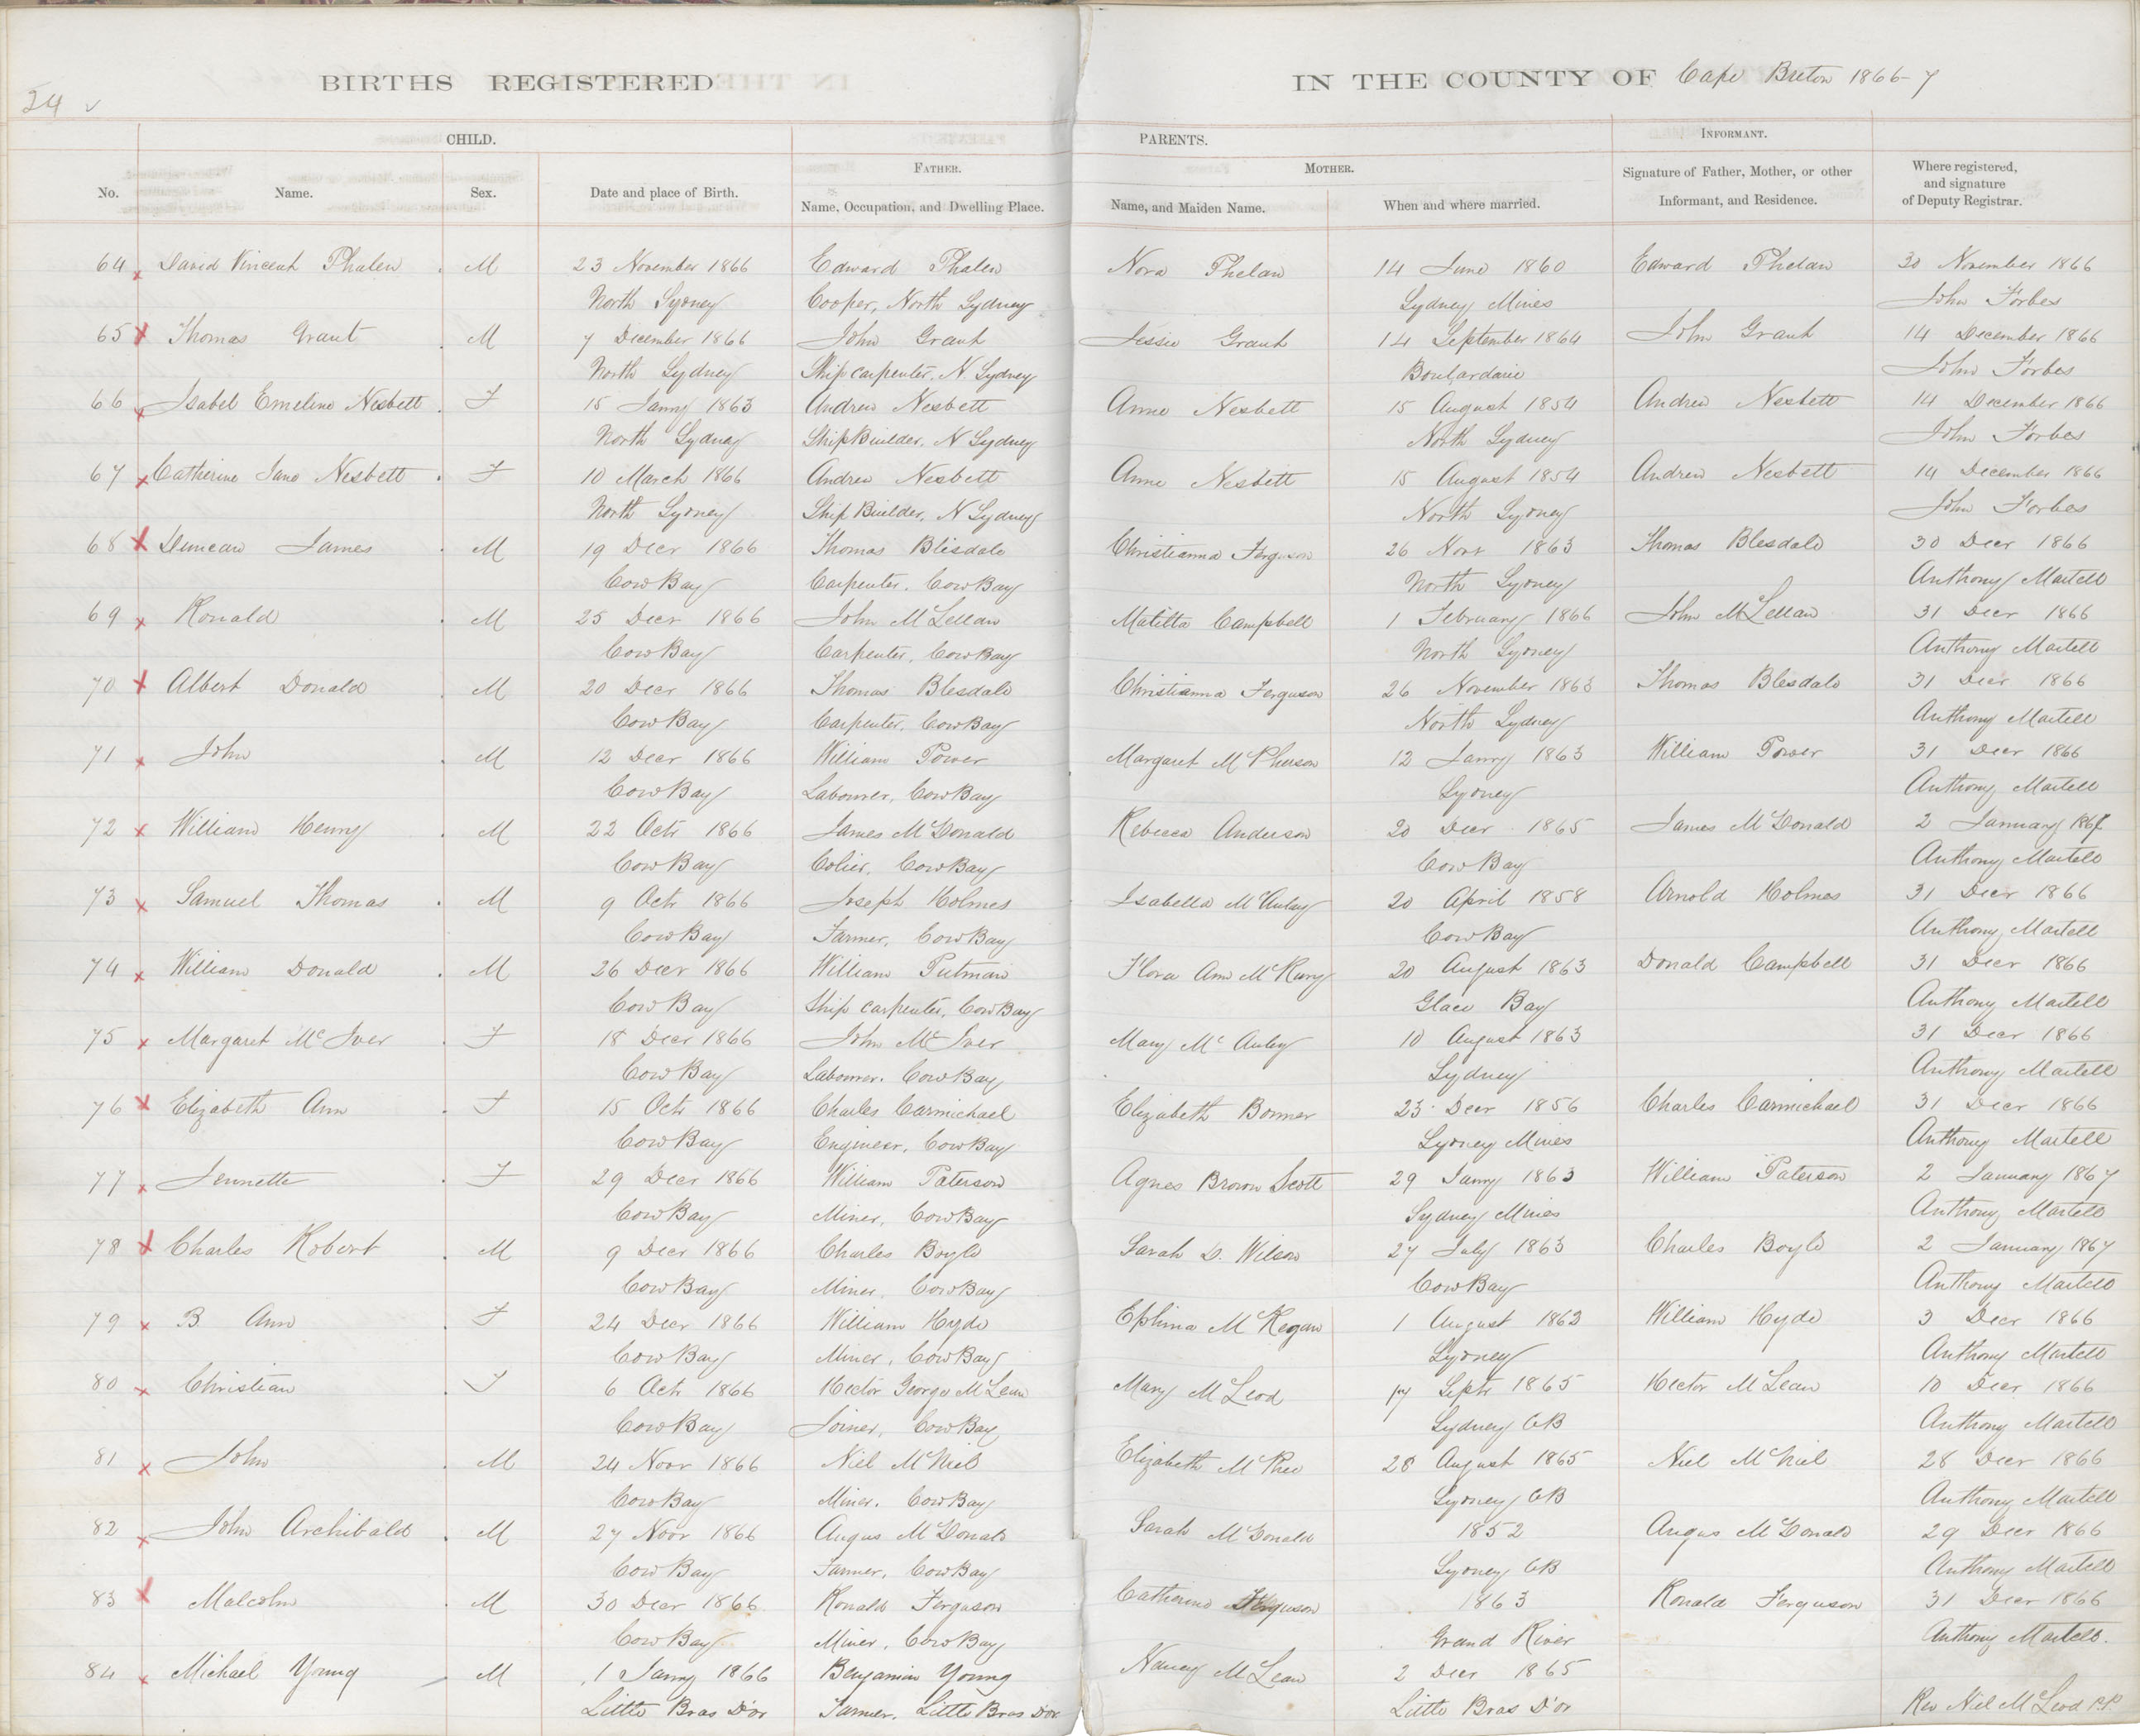 54 v
BIRTHS REGISTERED IN THE COUNTY OF Cape Breton 1866-7
CHILD. PARENTS. INFORMANT.
FATHER. MOTHER.
No. Name. Sex. Date and place of Birth. Name, Occupation, and Dwelling Place. Name, and Maiden Name. When and where married. Signature of Father, Mother, or other Informant, and Residence. Where registered, and signature of Deputy Registrar.
64 x David Vincent Phalen M 23 November 1866 Edward Phalen Nora Phelan 14 June 1860 Edward Phelan 30 November 1866
North Sydney Cooper, North Sydney Sydney Mines John Forbes
65 x Thomas Grant M 7 December 1866 John Grant Jessie Grant 14 September 1864 John Grant 14 December 1866
North Sydney Ship carpenter, N. Sydney Boulardarie John Forbes
66 x Isabel Emeline Nesbett F 15 Janry 1863 Andrew Nesbett Anne Nesbett 15 August 1854 Andrew Nesbett 14 December 1866
North Sydney Ship Builder, N Sydney North Sydney John Forbes
67 x Catherine Jane Nesbett F 10 March 1866 Andrew Nesbett Anne Nesbett 15 August 1854 Andrew Nesbett 14 December 1866
North Sydney Ship Builder, N Sydney North Sydney John Forbes
68 x Duncan James M 19 Decr 1866 Thomas Blesdale Christianna Ferguson 26 Novr 1863 Thomas Blesdale 30 Decr 1866
Cow Bay Carpenter, Cow Bay North Sydney Anthony Martell
69 x Ronald M 25 Decr 1866 John McLellan Matilta Campbell 1 February 1866 John McLellan 31 Decr 1866
Cow Bay Carpenter, Cow Bay North Sydney Anthony Martell
70 x Albert Donald M 20 Decr 1866 Thomas Blesdale Christianna Ferguson 26 November 1863 Thomas Blesdale 31 Decr 1866
Cow Bay Carpenter, Cow Bay North Sydney Anthony Martell
71 x John M 12 Decr 1866 William Power Margaret McPherson 12 Janry 1863 William Power 31 Decr 1866
Cow Bay Labourer, Cow Bay Sydney Anthony Martell
72 x William Henry M 22 Octr 1866 James McDonald Rebecca Anderson 20 Decr 1865 James McDonald 2 January 1867
Cow Bay Colier, Cow Bay Cow Bay Anthony Martell
73 x Samuel Thomas M 9 Octr 1866 Joseph Holmes Isabella McAulay 20 April 1858 Arnold Holmes 31 Decr 1866
Cow Bay Farmer, Cow Bay Cow Bay Anthony Martell
74 x William Donald M 26 Decr 1866 William Putman Flora Ann 20 August 1863 Donald Campbell 31 Decr 1866
Cow Bay Ship carpenter, Cow Bay Glace Bay Anthony Martell
75 x Margaret McIver F 18 Decr 1866 John McIver Mary McAuley 10 August 1863 31 Decr 1866
Cow Bay Labourer, Cow Bay Sydney Anthony Martell
76 x Elizabeth Ann F 15 Octr 1866 Charles Carmichael Elizabeth Bonner 23 Decr 1856 Charles Carmichael 31 Decr 1866
Cow Bay Engineer, Cow Bay Sydney Mines Anthony Martell
77 x Jennette F 29 Decr 1866 William Paterson Agnes Brown Scott 29 Janry 1863 William Paterson 2 January 1867
Cow Bay Miner, Cow Bay Sydney Mines Anthony Martell
78 x Charles Robert M 9 Decr 1866 Charles Boyle Sarah D. Wilson 27 July 1863 Charles Boyle 2 January 1867
Cow Bay Miner, Cow Bay Cow Bay Anthony Martell
79 x B Ann F 24 Decr 1866 William Hyde Ephina McKegan 1 August 1862 William Hyde 3 Decr 1866
Cow Bay Miner, Cow Bay Sydney Anthony Martell
80 x Christian F 6 Octr 1866 Hector George McLean Mary McLeod 17 Septr 1865 Hector McLean 10 Decr 1866
Cow Bay Joiner, Cow Bay Sydney CB Anthony Martell
81 x John M 24 Novr 1866 Niel McNiel Elizabeth McPhee 28 August 1865 Niel McNiel 28 Decr 1866
Cow Bay Miner, Cow Bay Sydney CB Anthony Martell
82 x John Archibald M 27 Novr 1866 Angus McDonald Sarah McDonald 1852 Angus McDonald 29 Decr 1866
Cow Bay Farmer, Cow Bay Sydney CB Anthony Martell
83 x Malcolm M 30 Decr 1866 Ronald Ferguson Catherine Ferguson 1863 Ronald Ferguson 31 Decr 1866
Cow Bay Miner, Cow Bay Grand River Anthony Martell.
84 x Michael Young M 1 Janry 1866 Benjamin Young Nancy McLean 2 Decr 1865
Little Bras D'or Farmer, Little Bras D'or Little Bras D'or Rev Niel McLeod P.P.